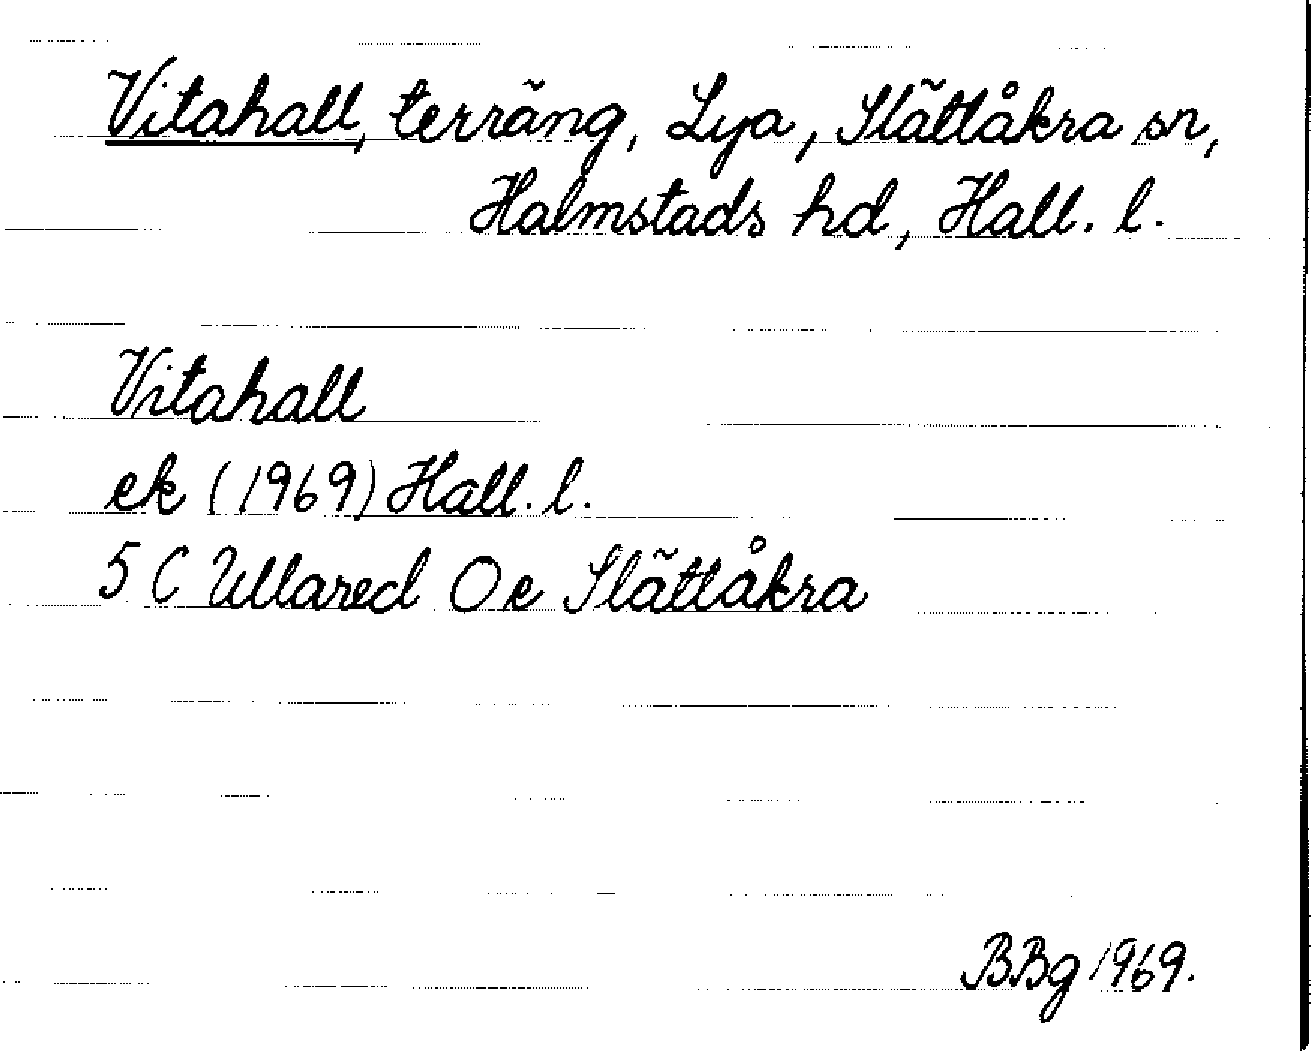 Vitahall, terräng, Lya, Slättåkra sn,
Halmstads hd, Hall. l.
Vitahall
ek (1969) Hall. l.
5 C Ullared Oe Slättåkra
BBg 1969.